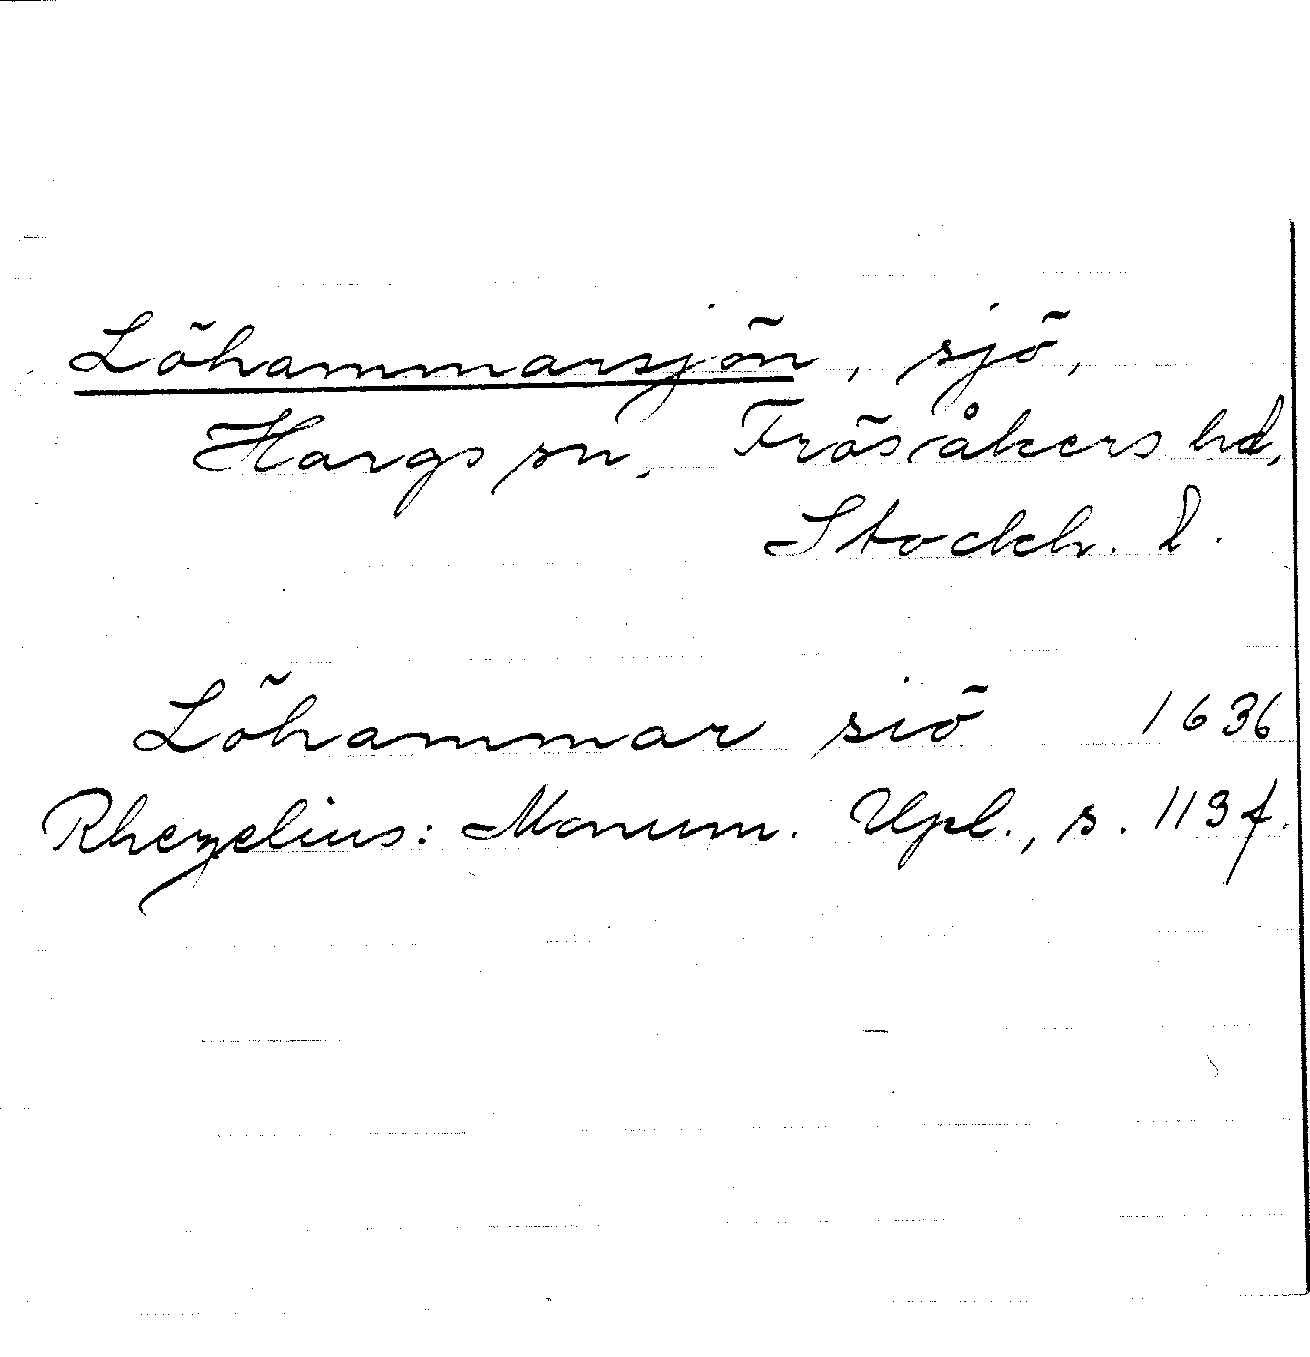 Löhammarsjön, sjö,
Hargs sn, Frösåkers hd,
Stockh. l.
Löhammar siö 1636
Rhezelius: Monum. Upl., s. 113 f.